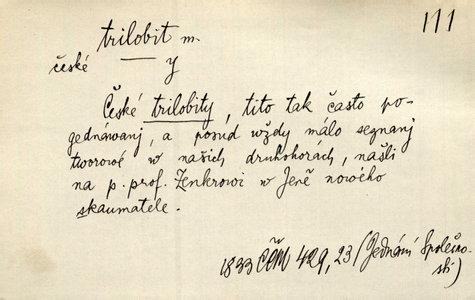 111
trilobit m.
české — y
České trilobity, tito tak často po-
gednáwanj, a posud wždy málo segnanj
tworowé w našich druhohorách, našli
na p. prof. Zenkrowi w Jeně nowého
skaumatele.
1833 ČČM 429, 23 (Jednání Společno-
sti)